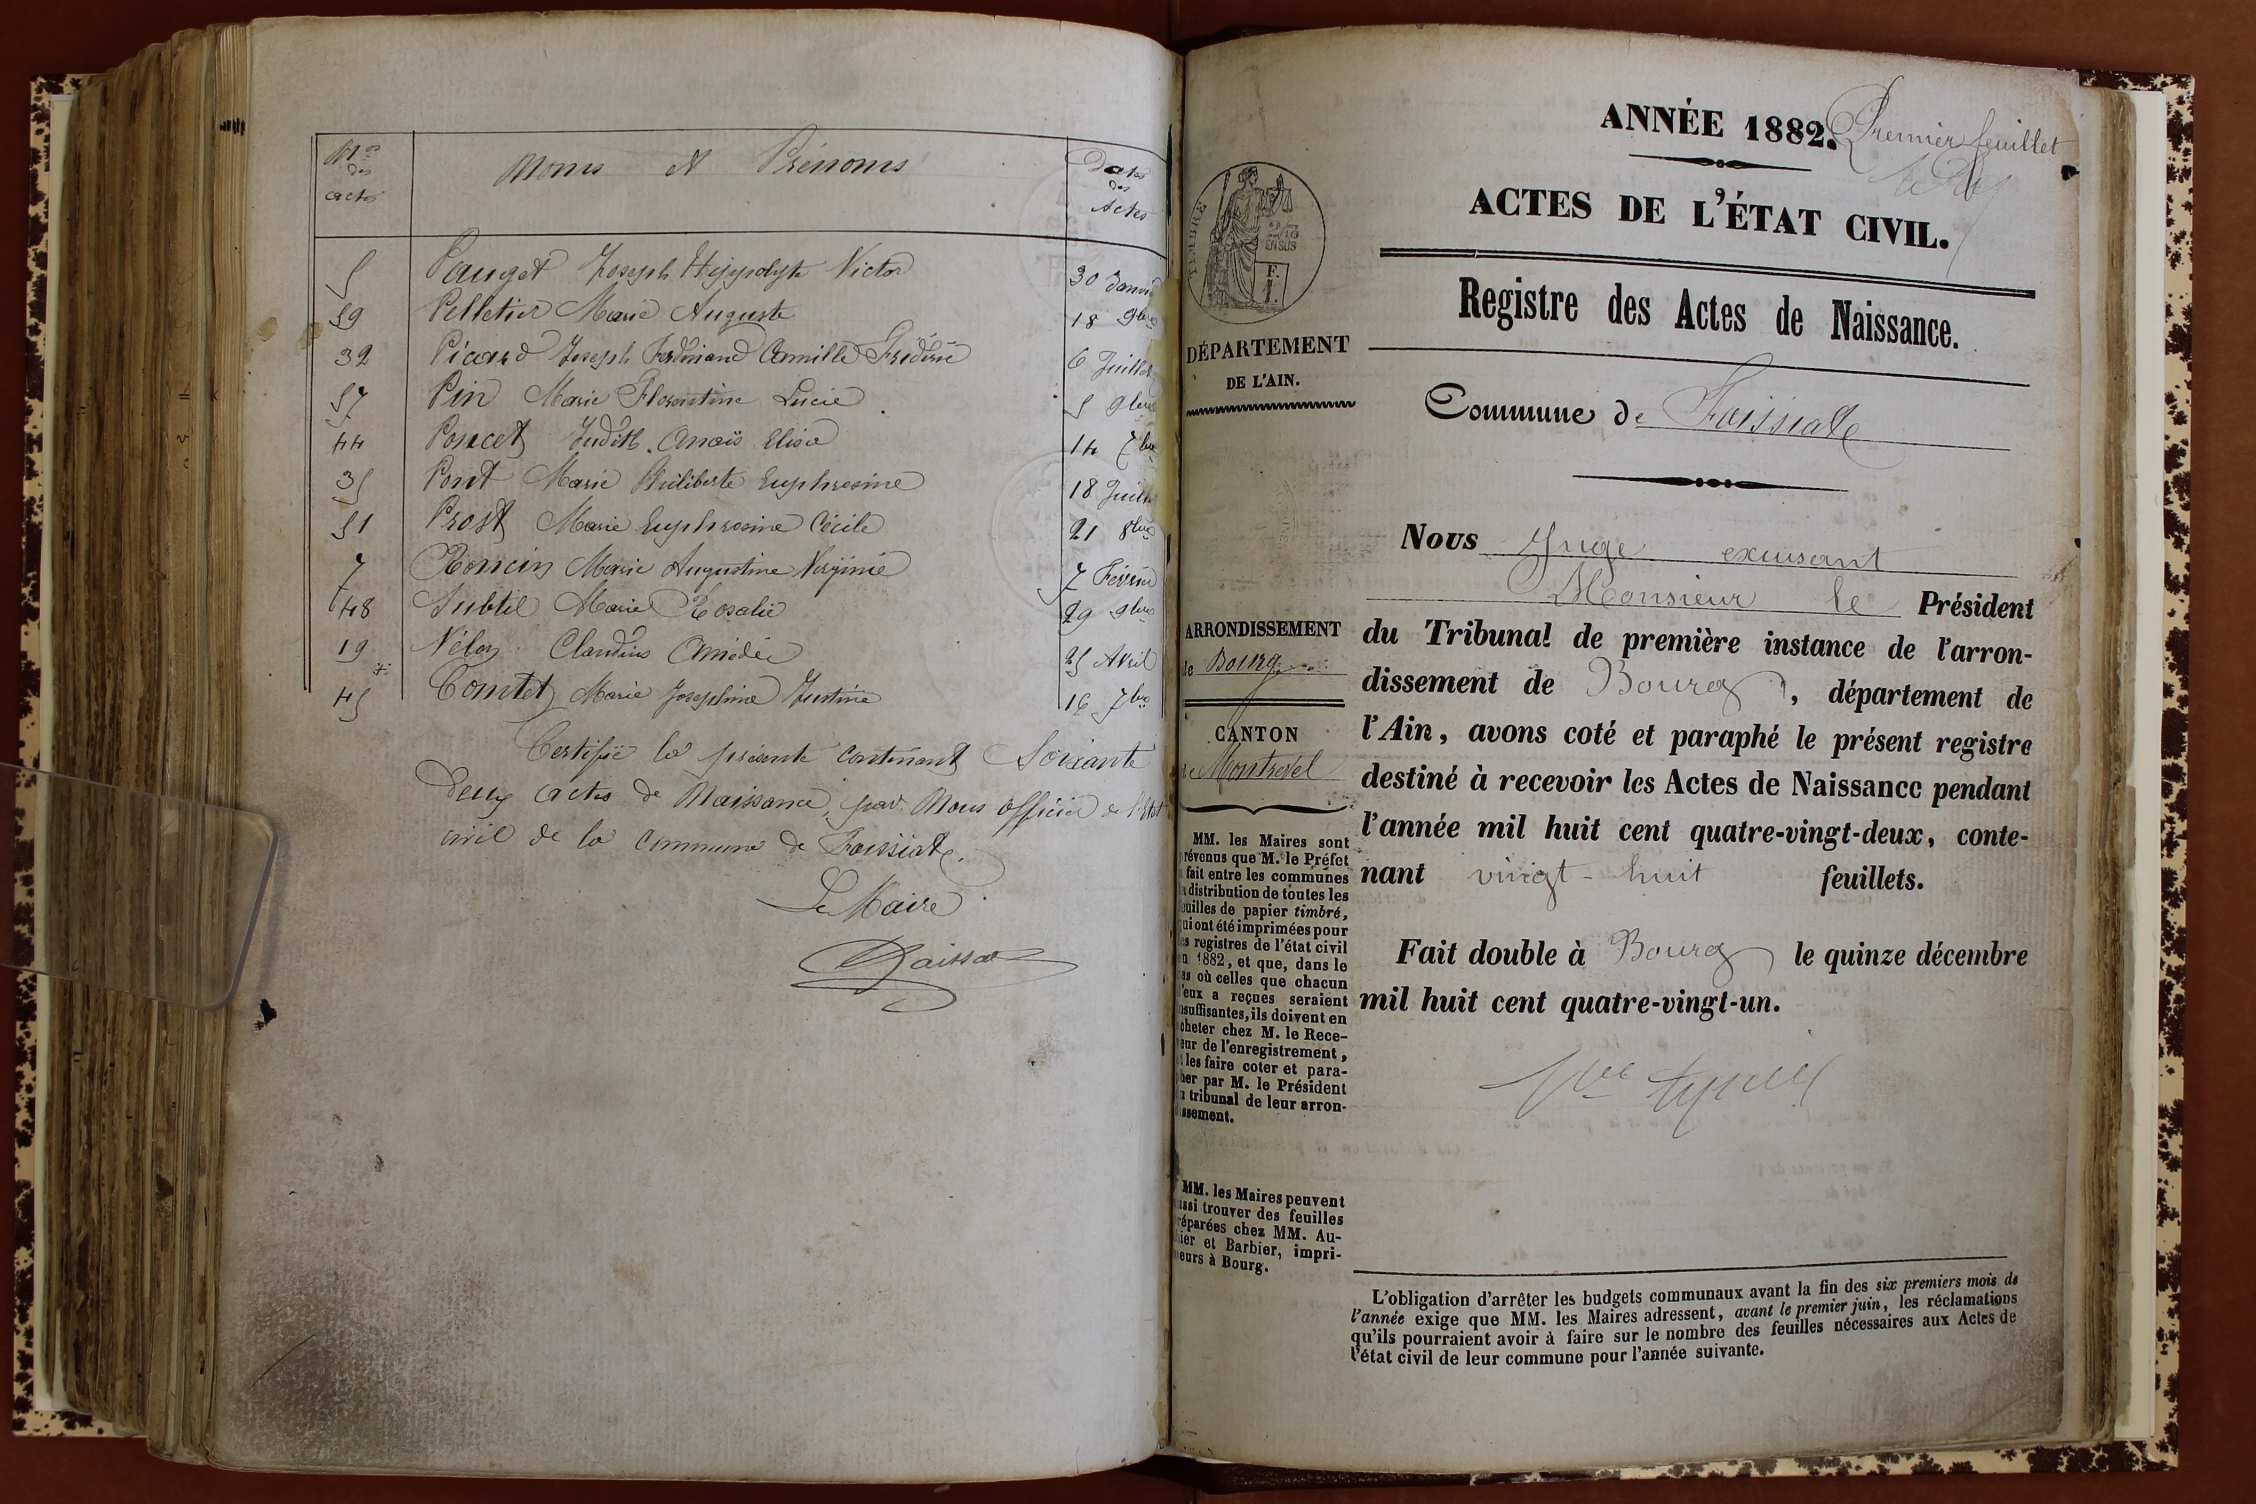 Nos des actes
Noms et Prénoms
Dates des Actes
5 Pauget Joseph Hippolyte Victor 30 Janvier
59 Pelletier Marie Auguste 18 9bre
32 Picard Joseph Ferdinand Camille Frédéric 6 Juillet
57 Pin Marie Florentine Lucie 5 9bre
44 Poncet Judith Anaïs Elisa 14 7bre
35 Pont Marie Philiberte Euphrosine 18 Juillet
51 Prost Marie Euphrosine Cécile 21 8bre
7 Roncin Marie Augustine Virginie 7 Février
48 Subtil Marie Rosalie 29 9bre
19 Vélon Claudius Amédée 25 Avril
45 Comtet Marie Joséphine Justine 16 7bre
Certifié la présente contenant Soixante
deux actes de Naissance, par Nous officier de l'Etat
civil de la commune de Foissiat.
Le Maire
ANNÉE 1882.
Premier feuillet
ACTES DE L'ÉTAT CIVIL.
Registre des Actes de Naissance.
Commune de Foissiat
TIMBRE
2/10
EN SUS
DÉPARTEMENT
DE L'AIN.
ARRONDISSEMENT
de Bourg
CANTON
de Montrevel
MM. les Maires sont
prévenus que M. le Préfet
a fait entre les communes
la distribution de toutes les
feuilles de papier timbré,
qui ont été imprimées pour
les registres de l'état civil
en 1882, et que, dans le
cas où celles que chacun
d'eux a reçues seraient
insuffisantes, ils doivent en
acheter chez M. le Rece-
veur de l'enregistrement,
et les faire coter et para-
pher par M. le Président
du tribunal de leur arron-
dissement.
MM. les Maires peuvent
aussi trouver des feuilles
préparées chez MM. Au-
thier et Barbier, impri-
meurs à Bourg.
Nous Juge excusant
Monsieur le Président
du Tribunal de première instance de l'arron-
dissement de Bourg, département de
l'Ain, avons coté et paraphé le présent registre
destiné à recevoir les Actes de Naissance pendant
l'année mil huit cent quatre-vingt-deux, conte-
nant vingt-huit feuillets.
Fait double à Bourg le quinze décembre
mil huit cent quatre-vingt-un.
L'obligation d'arrêter les budgets communaux avant la fin des six premiers mois de
l'année exige que MM. les Maires adressent, avant le premier juin, les réclamations
qu'ils pourraient avoir à faire sur le nombre des feuilles nécessaires aux Actes de
l'état civil de leur commune pour l'année suivante.